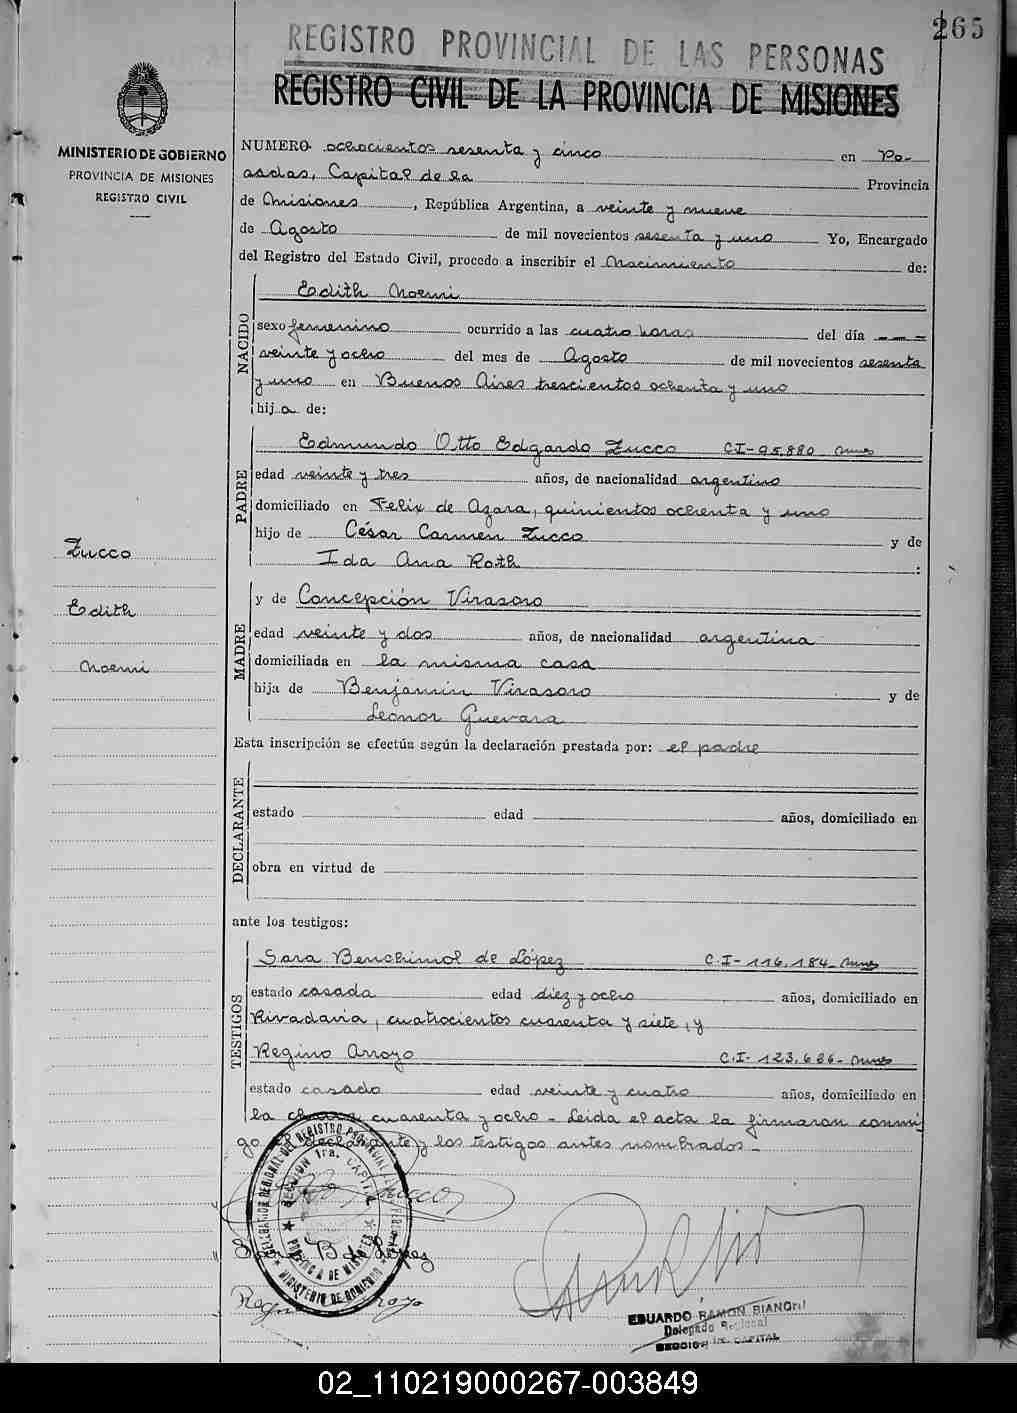 265
REGISTRO PROVINCIAL DE LAS PERSONAS
REGISTRO CIVIL DE LA PROVINCIA DE MISIONES
MINISTERIO DE GOBIERNO
PROVINCIA DE MISIONES
REGISTRO CIVIL
NUMERO ochocientos sesenta y cinco en Po-
sadas, Capital de la Provincia
de Misiones, República Argentina, a veinte y nueve
de Agosto de mil novecientos sesenta y uno Yo, Encargado
del Registro del Estado Civil, procedo a inscribir el Nacimiento de:
NACIDO
Edith Noemi
sexo femenino ocurrido a las cuatro horas del día ---
veinte y ocho del mes de Agosto de mil novecientos sesenta
y uno en Buenos Aires trescientos ochenta y uno
hija de:
PADRE
Edmundo Otto Edgardo Zucco CI-95.880
edad veinte y tres años, de nacionalidad argentino
domiciliado en Felix de Azara, quinientos ochenta y uno
hijo de César Carmen Zucco y de
Ida Ana Roth :
Zucco
Edith
Noemi
MADRE
y de Concepción Virasoro
edad veinte y dos años, de nacionalidad argentina
domiciliada en la misma casa
hija de Benjamin Virasoro y de
Leonor Guevara
Esta inscripción se efectúa según la declaración prestada por: el padre
DECLARANTE
estado edad años, domiciliado en
obra en virtud de
ante los testigos:
TESTIGOS
Sara Benchimol de López C.I-116.184
estado casada edad diez y ocho años, domiciliado en
Rivadavia, cuatrocientos cuarenta y siete, y
Regino Arroyo C.I-123.686
estado casado edad veinte y cuatro años, domiciliado en
la cuarenta y ocho - Leida el acta la firmaron conmi-
go el declarante y los testigos antes nombrados -
DELEGACION REGIONAL DEL REGISTRO PROVINCIAL
SECCION 1ra. CAPITAL
PROVINCIA DE MISIONES
MINISTERIO DE GOBIERNO
B de López
EDUARDO RAMON BIANCHI
Delegado Regional
SECCION CAPITAL
02_110219000267-003849